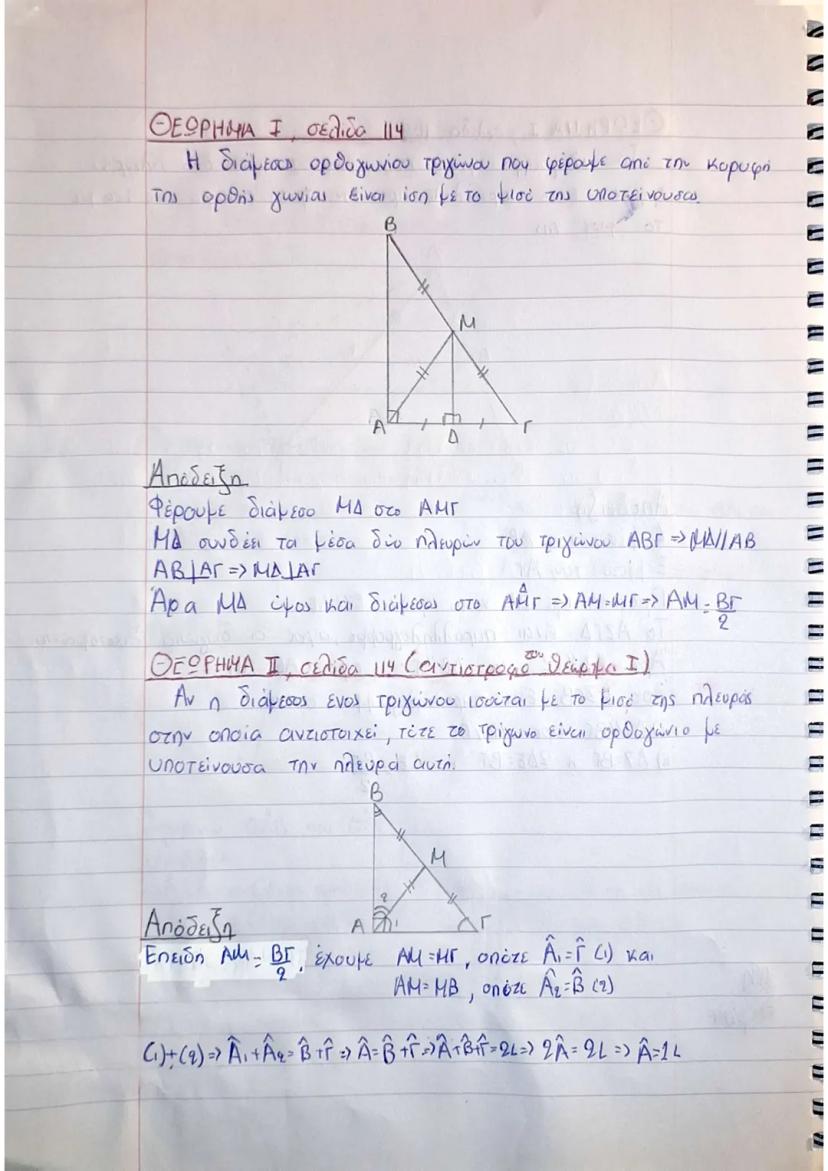 ΘΕΩΡΗΜΑ Ι, σελίδα 114
Η διάμεσος ορθογωνίου τριγώνου που φέρουμε από την κορυφή
της ορθής γωνίας είναι ίση με το μισό της υποτείνουσας.
B
M
A
Δ
Γ
Απόδειξη
Φέρουμε διάμεσο ΜΔ στο ΑΜΓ
ΜΔ συνδέει τα μέσα δύο πλευρών του τριγώνου ΑΒΓ => ΜΔ//ΑΒ
ΑΒ⊥ΑΓ => ΜΔ⊥ΑΓ
Άρα ΜΔ ύψος και διάμεσος στο ΑΜ̂Γ => ΑΜ=ΜΓ => ΑΜ = ΒΓ/2
ΘΕΩΡΗΜΑ ΙΙ, σελίδα 114 (αντίστροφο του θεώρημα Ι)
Αν η διάμεσος ενός τριγώνου ισούται με το μισό της πλευράς
στην οποία αντιστοιχεί, τότε το τρίγωνο είναι ορθογώνιο με
υποτείνουσα την πλευρά αυτή.
B
M
2
A
1
Γ
Απόδειξη
Επειδή ΑΜ = ΒΓ/2, έχουμε ΑΜ=ΜΓ, οπότε Â₁=Γ̂ (1) και
ΑΜ=ΜΒ, οπότε Â₂=B̂ (2)
(1)+(2) => Â₁+Â₂=B̂+Γ̂ => Â=B̂+Γ̂ => Â+B̂+Γ̂=2L => 2Â=2L => Â=1L